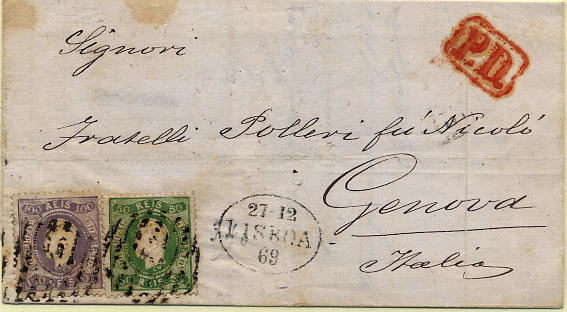 Signori
P.D.
Fratelli Polleri fú Nicoló
Genova
Italia
27-12
LISBOA
69
100 REIS 100
50 REIS 50